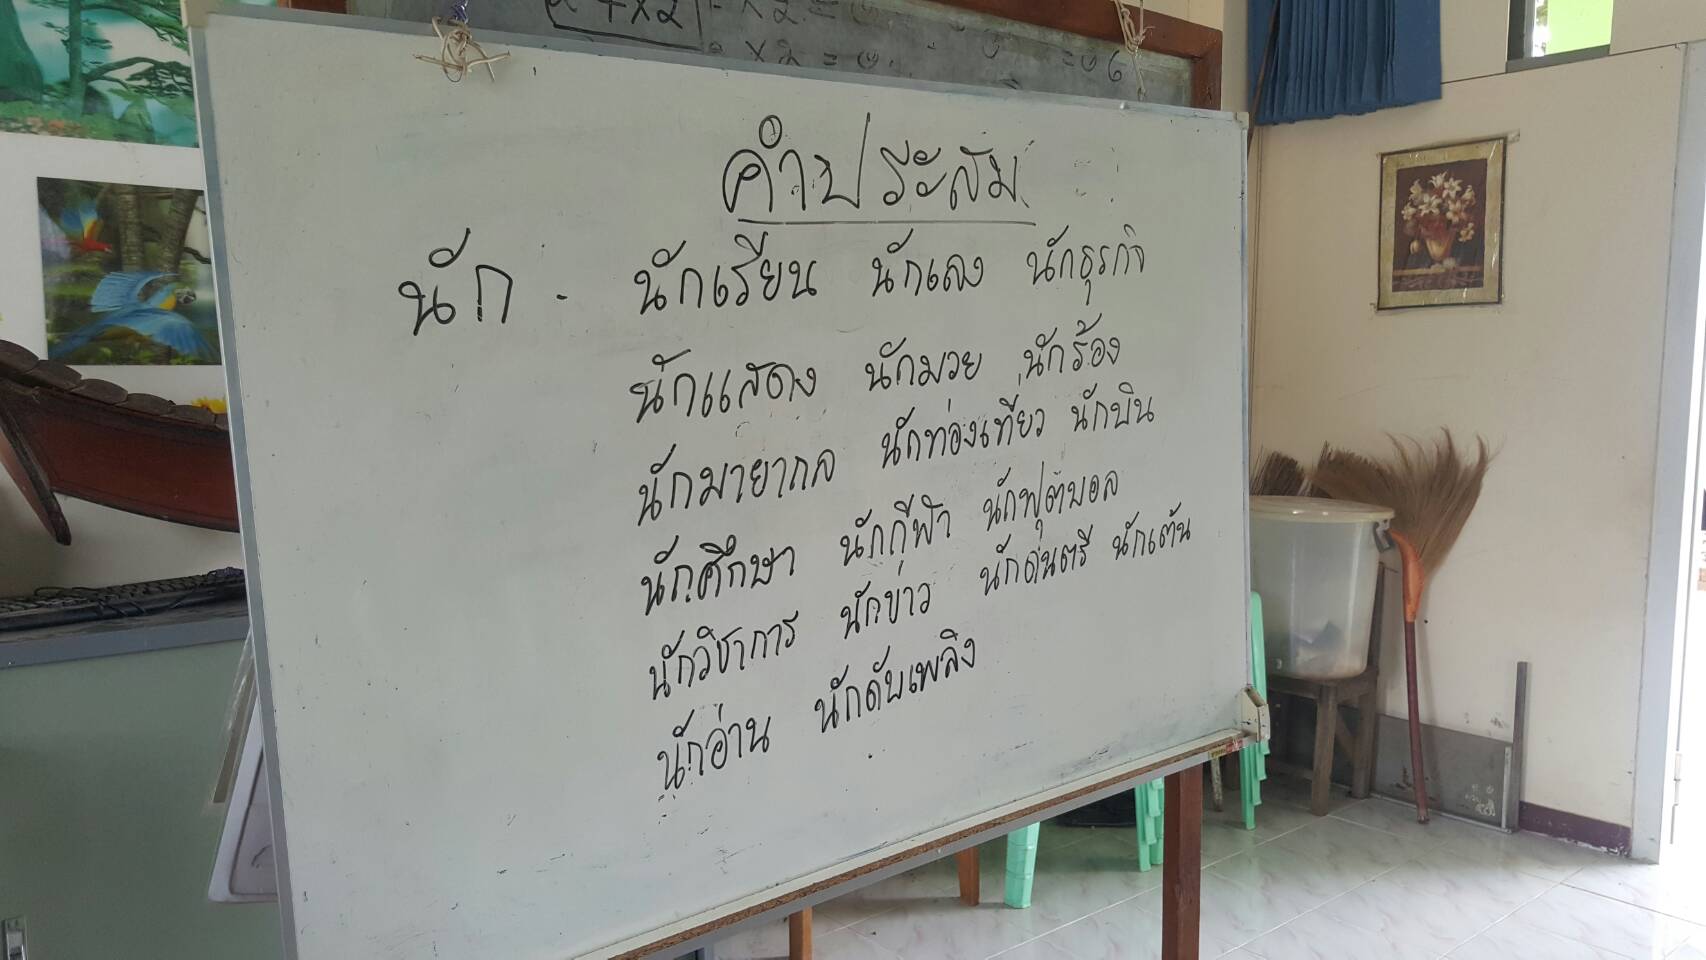 คำประสม
นัก - นักเรียน นักเลง นักธุรกิจ
นักแสดง นักมวย นักร้อง
นักมายากล นักท่องเที่ยว นักบิน
นักศึกษา นักกีฬา นักฟุตบอล
นักวิชาการ นักข่าว นักดนตรี นักเต้น
นักอ่าน นักดับเพลิง